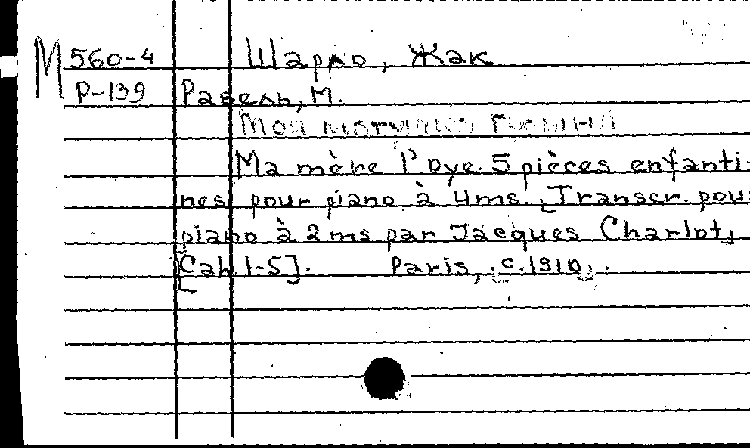 М 560-4 Шарло, Жак
Р-139 Равель, М.
Моя матушка Гусыня
Ma mère l'Oye. 5 pièces enfanti-
nes pour piano à 4 ms. [Transcr. pour
piano à 2 ms par Jacques Charlot,
[Cah 1-5]. Paris, c. 1910.